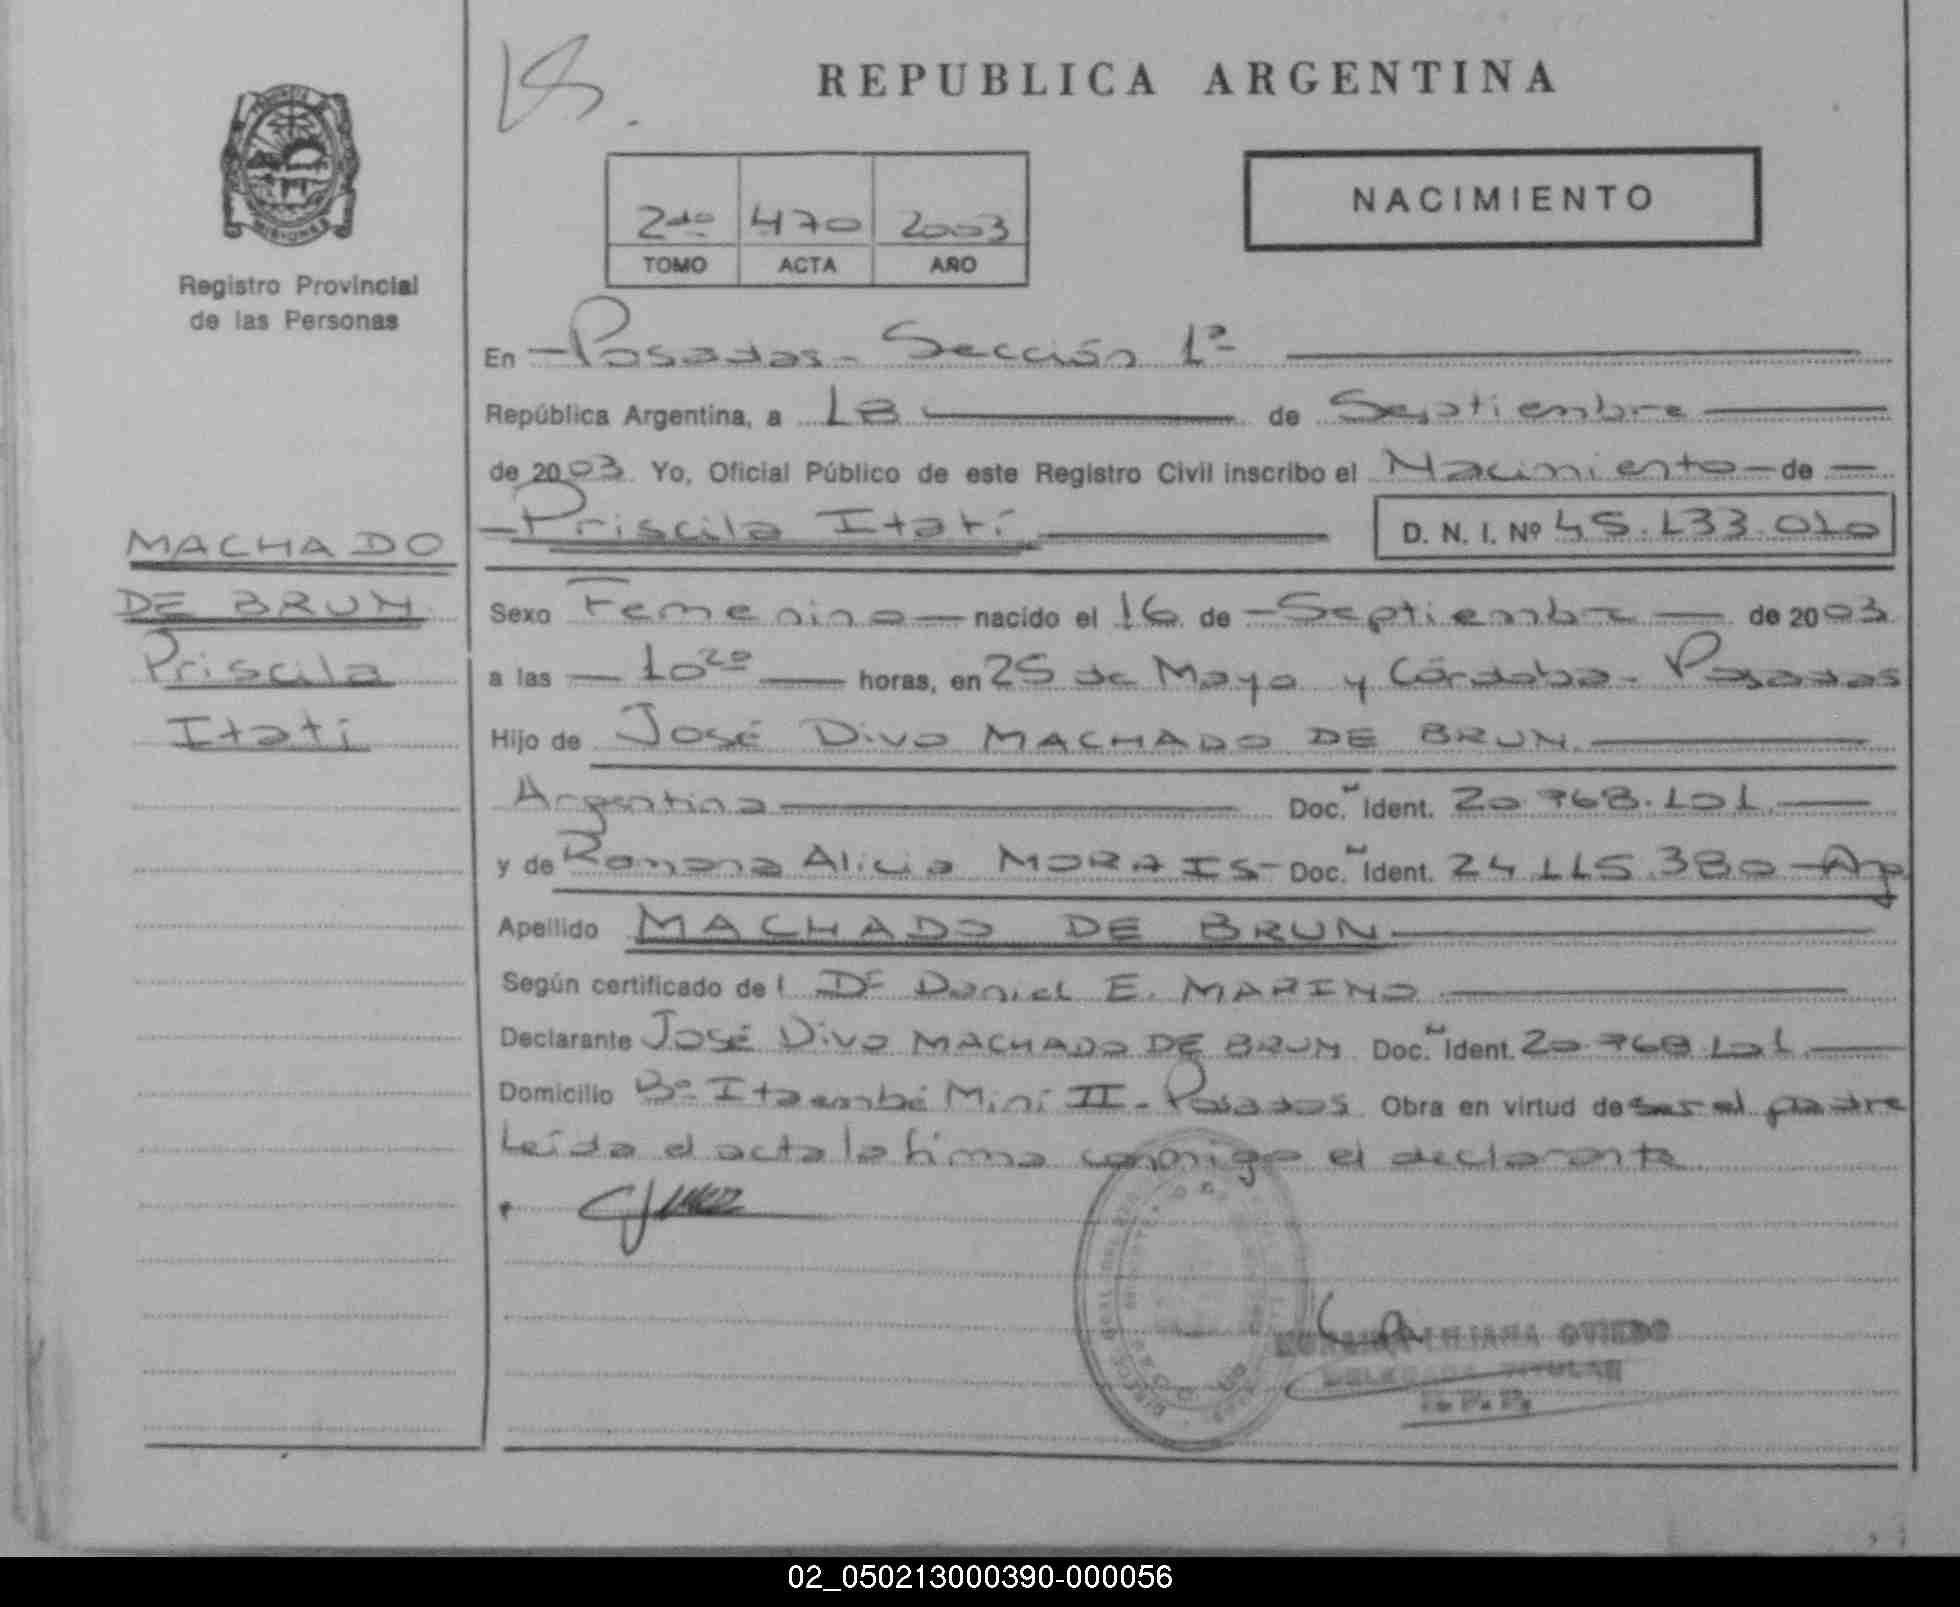 REPUBLICA ARGENTINA
2do 470 2003
TOMO ACTA AÑO
NACIMIENTO
MISIONES
Registro Provincial
de las Personas
En Posadas - Sección 1ª
República Argentina, a 18 de Septiembre
de 2003 Yo, Oficial Público de este Registro Civil inscribo el Nacimiento de
Priscila Itatí D. N. I. Nº 45.133.010
MACHADO
DE BRUM
Priscila
Itatí
Sexo Femenino nacido el 16 de Septiembre de 2003
a las 10 20 horas, en 25 de Mayo y Córdoba - Posadas
Hijo de José Divo MACHADO DE BRUM
Argentina Doc. Ident. 20.768.101
y de Ramona Alicia MORAIS - Doc. Ident. 24.115.380 - Arg
Apellido MACHADO DE BRUN
Según certificado del Dr Daniel E. MARINO
Declarante José Divo MACHADO DE BRUM Doc. Ident. 20.768.101
Domicilio Bº Itaembé Miní II - Posadas Obra en virtud de ser el padre
Leída el acta la firma conmigo el declarante
LILIANA OVIEDO
DELEGADA TITULAR
R. P. P.
02_050213000390-000056